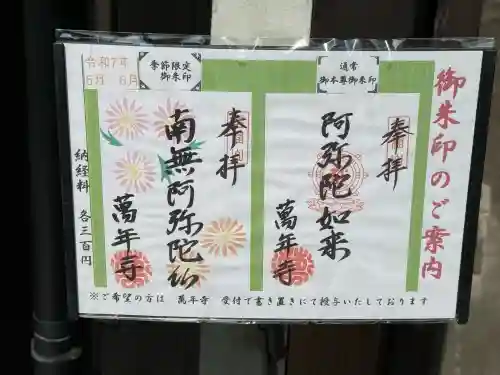 御朱印のご案内
通常
御本尊御朱印
奉拝
阿弥陀如来
萬年寺
季節限定
御朱印
令和7年
5月 6月
奉拝
南無阿弥陀仏
萬年寺
納経料 各三百円
※ご希望の方は 萬年寺 受付で書き置きにて授与いたしております